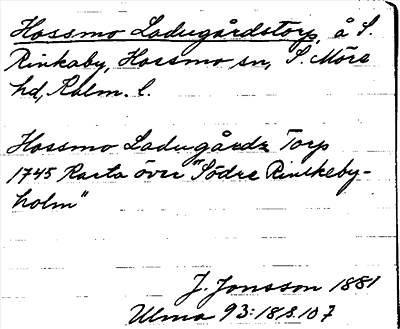 Hossmo Ladugårdstorp, å S.
Rinkaby, Hossmo sn, S. Möre
hd, Kalm. l.
Hossmo Ladugårds Torp
1745 Karta över "Södre Rinkeby-
holm"
J. Jonsson 1881
Ulma 93:18,8.107